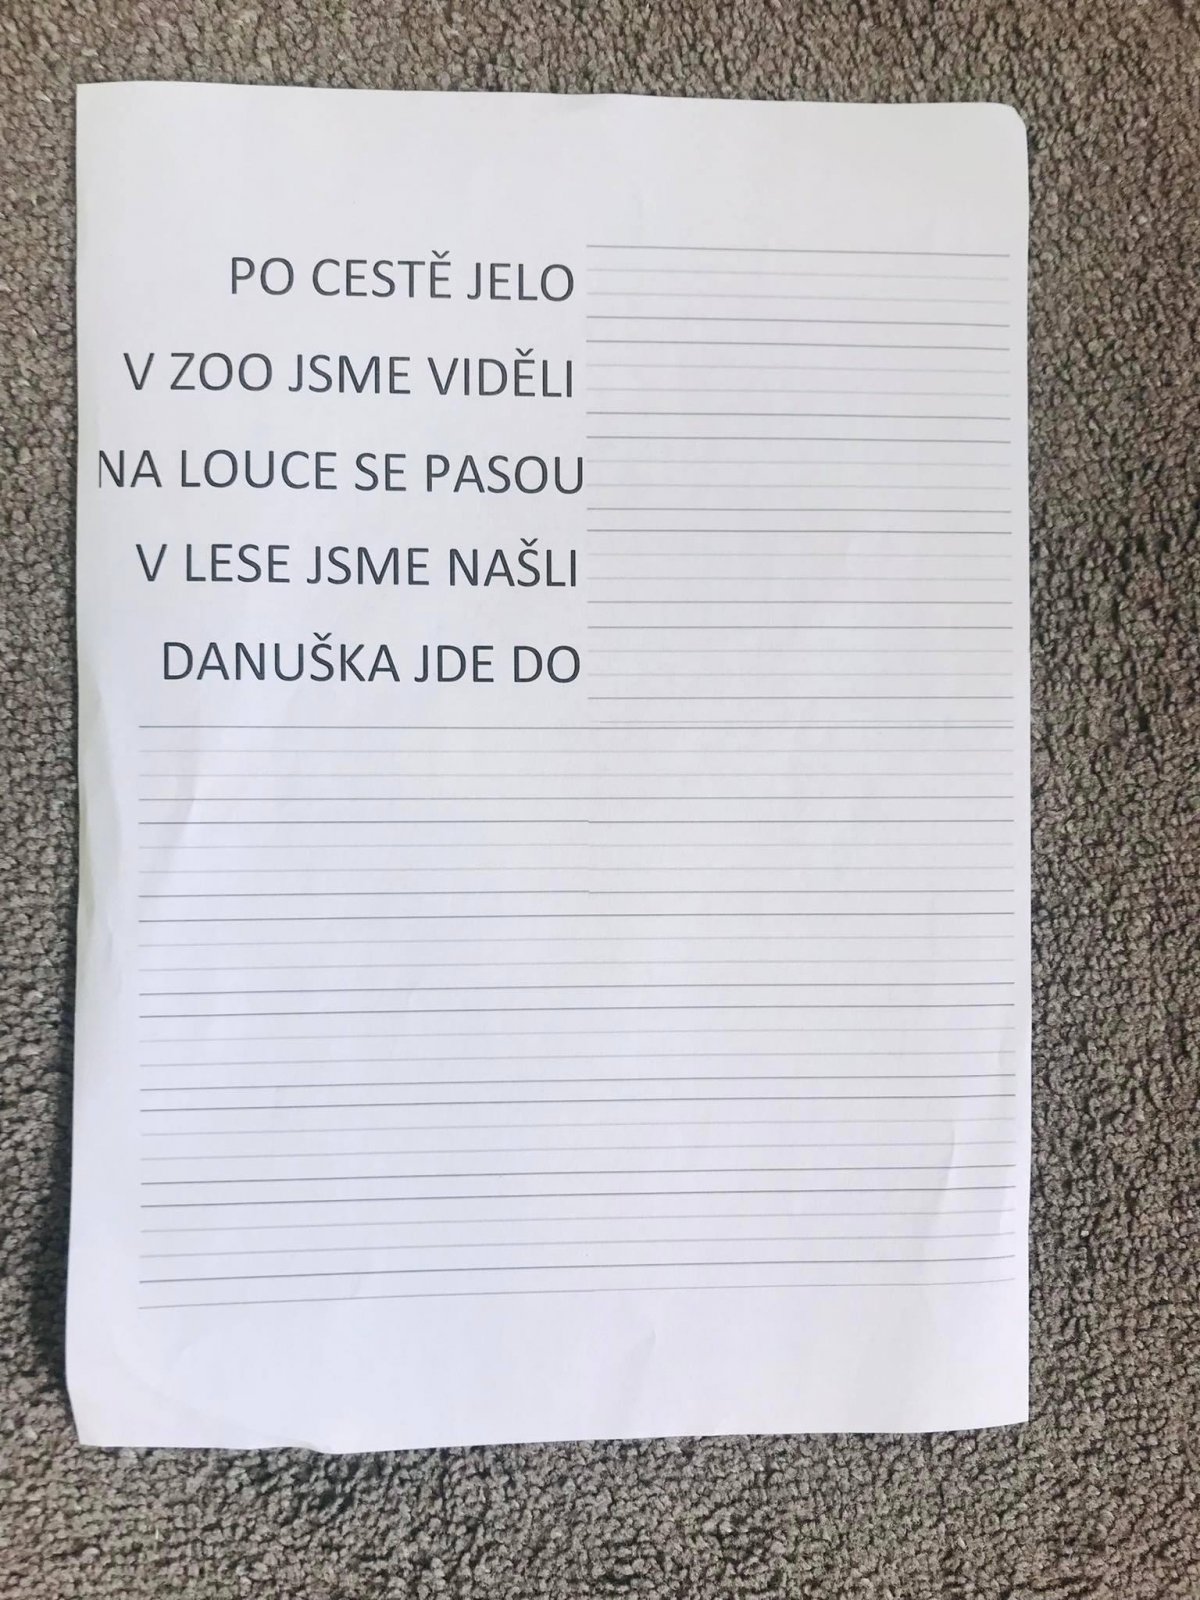 PO CESTĚ JELO
V ZOO JSME VIDĚLI
NA LOUCE SE PASOU
V LESE JSME NAŠLI
DANUŠKA JDE DO